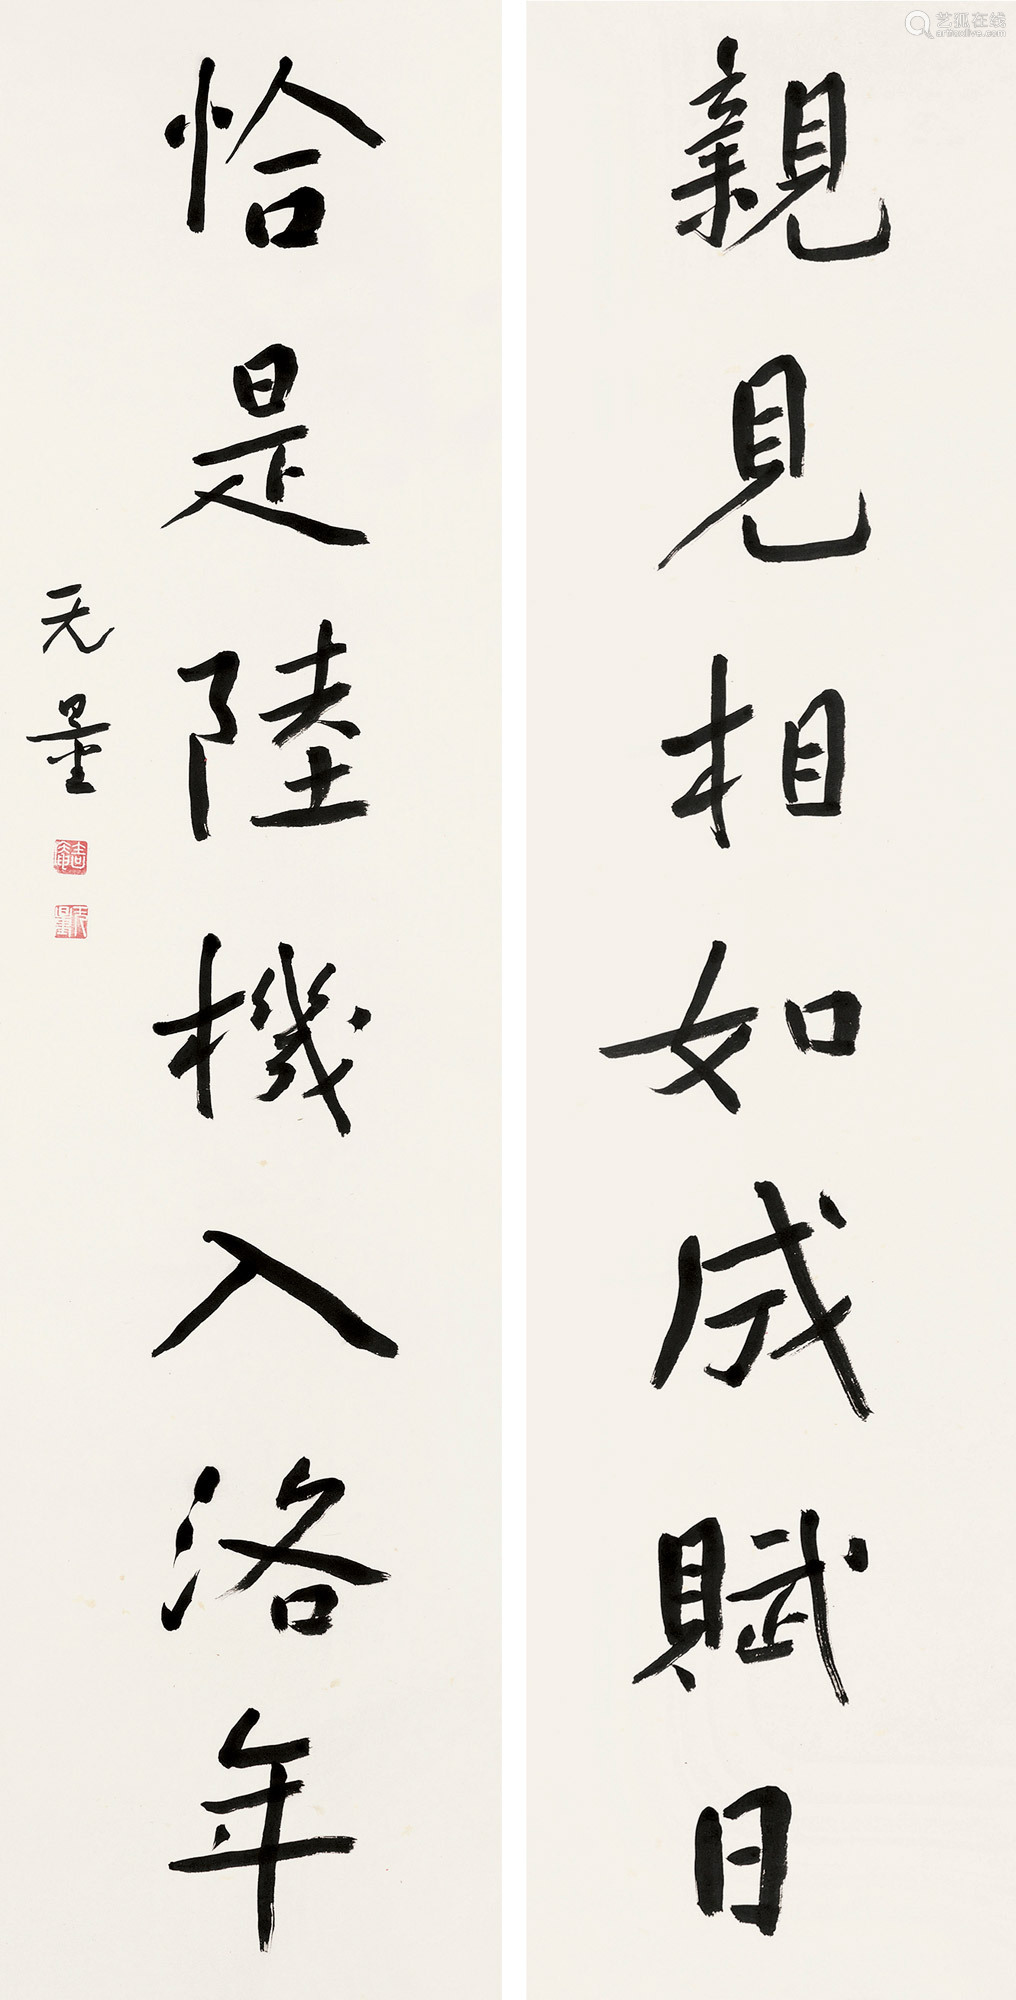 親見相如成賦日
恰是陸機入洛年
无量
艺狐在线
artfoxlive.com